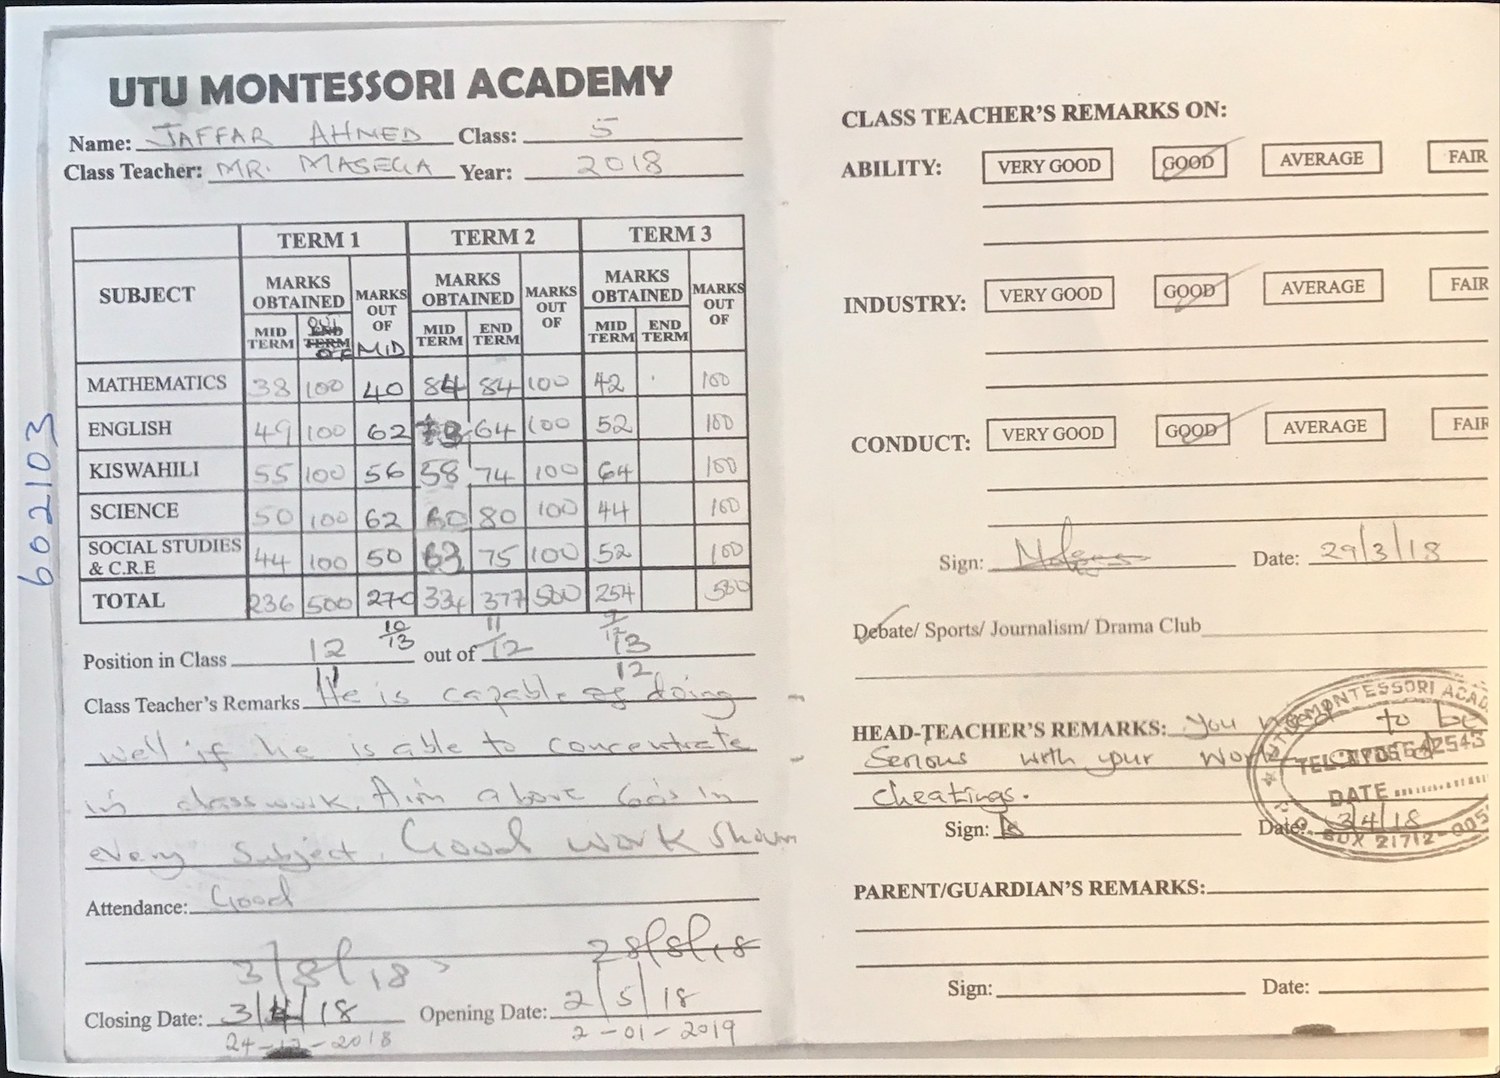 UTU MONTESSORI ACADEMY
Name: JAFFAR AHMED Class: 5
Class Teacher: MR. MASEGA Year: 2018
TERM 1 TERM 2 TERM 3
SUBJECT MARKS OBTAINED MARKS OUT OF MARKS OBTAINED MARKS OUT OF MARKS OBTAINED MARKS OUT OF
MID TERM END TERM OUT OF MID MID TERM END TERM MID TERM END TERM
MATHEMATICS 38 100 40 84 84 100 42 100
ENGLISH 49 100 62 64 100 52 100
KISWAHILI 55 100 56 58 74 100 64 100
SCIENCE 50 100 62 60 80 100 44 100
SOCIAL STUDIES & C.R.E 44 100 50 63 75 100 52 100
TOTAL 236 500 270 334 377 500 254 500
10/13 11
Position in Class 12 out of 12 13
11 12
Class Teacher's Remarks He is capable of doing
well if he is able to concentrate
in classwork. Aim above 60s in
every subject. Good work shown
Attendance: Good
3/8/18 28/8/18
Closing Date: 3/4/18 Opening Date: 2/5/18
24-12-2018 2-01-2019
602103
CLASS TEACHER'S REMARKS ON:
ABILITY: VERY GOOD GOOD AVERAGE FAIR
INDUSTRY: VERY GOOD GOOD AVERAGE FAIR
CONDUCT: VERY GOOD GOOD AVERAGE FAIR
Sign: Date: 29/3/18
Debate/ Sports/ Journalism/ Drama Club
HEAD-TEACHER'S REMARKS: You need to be
Serious with your work
cheatings.
Sign: Date: 3/4/18
MONTESSORI ACAD
TEL:
DATE
BOX 21712-005
PARENT/GUARDIAN'S REMARKS:
Sign: Date: